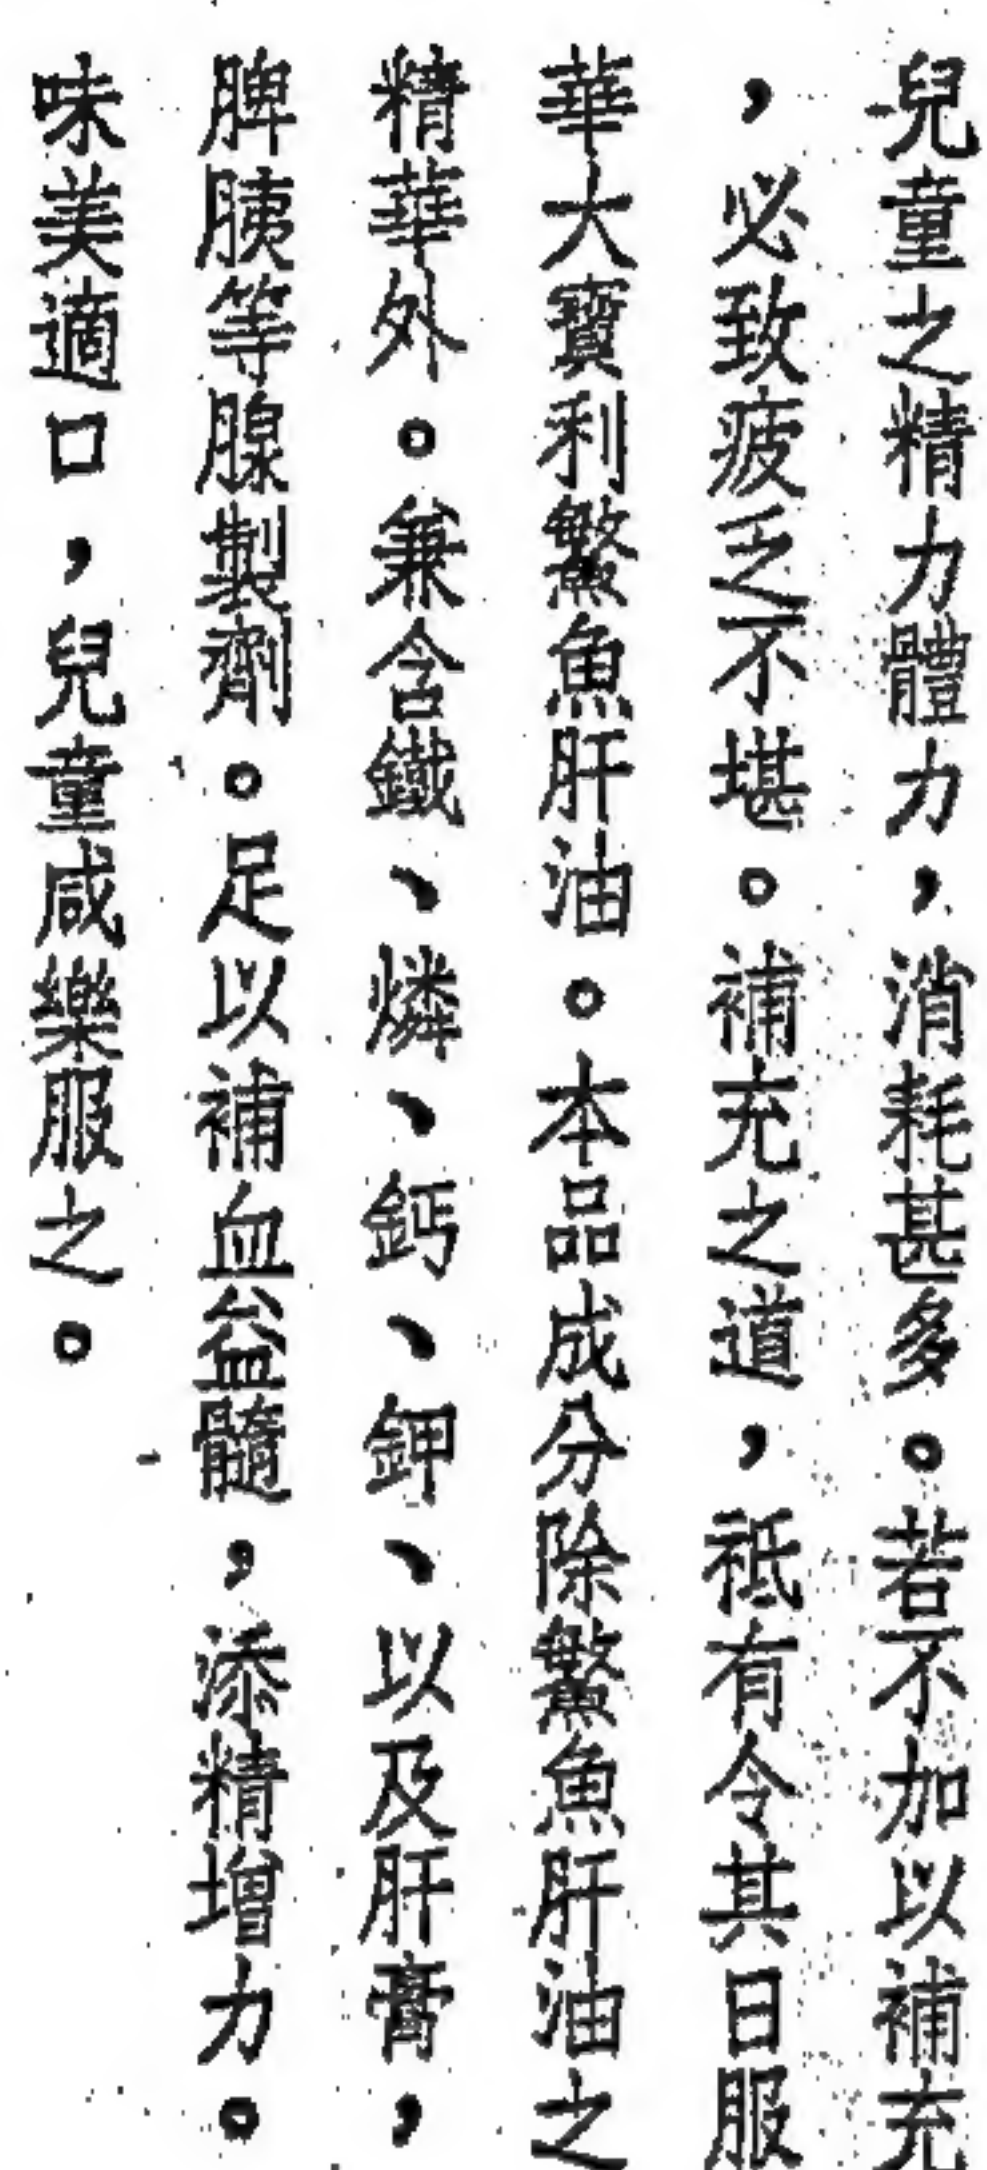 兒童之精力體力，消耗甚多。若不加以補充
，必致疲乏不堪。補充之道，祗有令其日服
華大寶利鰵魚肝油。本品成分除鰵魚肝油之
精華外。兼含鐵、燐、鈣、鉀、以及肝膏，
脾胰等腺製劑。足以補血益髓，添精增力。
味美適口，兒童咸樂服之。